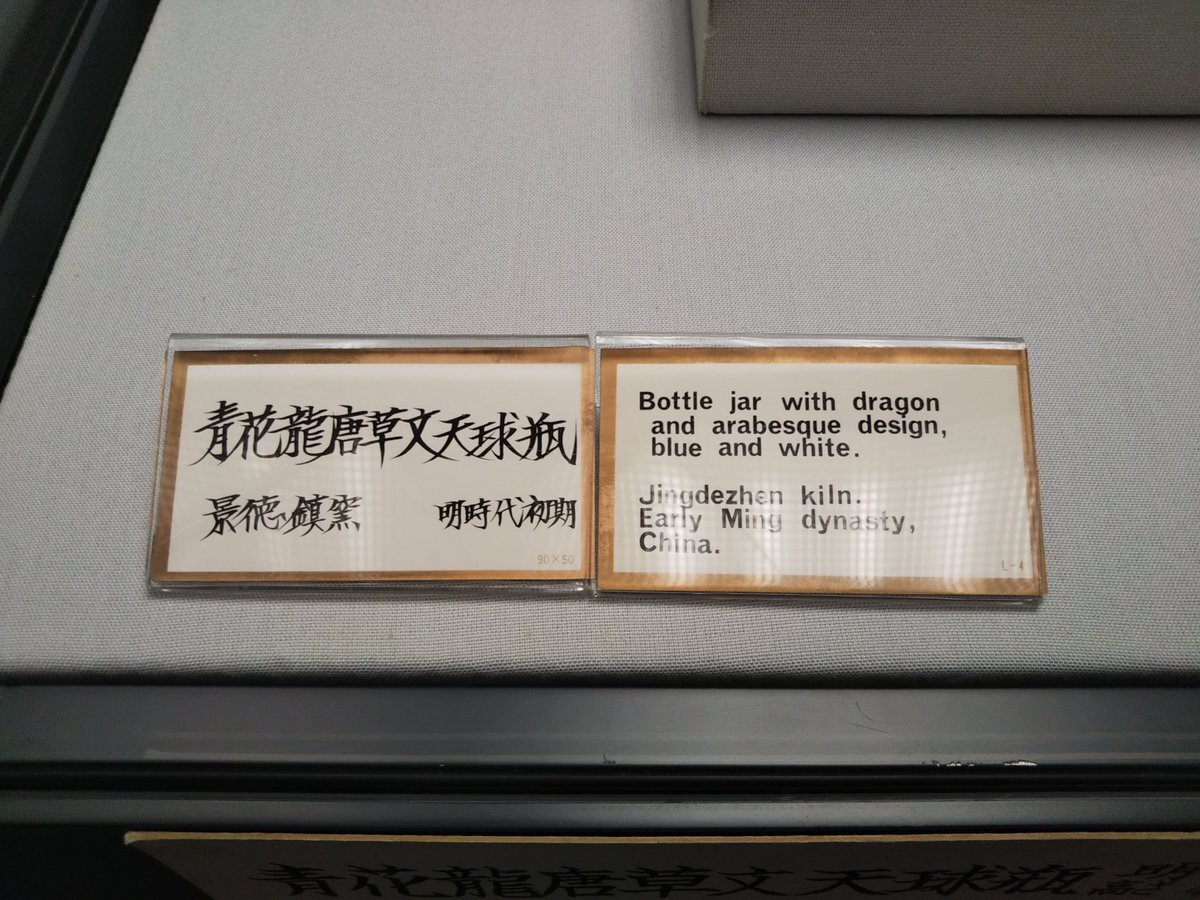 青花龍唐草文天球瓶
景徳鎮窯 明時代初期
90×50
Bottle jar with dragon
and arabesque design,
blue and white.
Jingdezhen kiln.
Early Ming dynasty,
China.
L-4
青花龍唐草文天球瓶